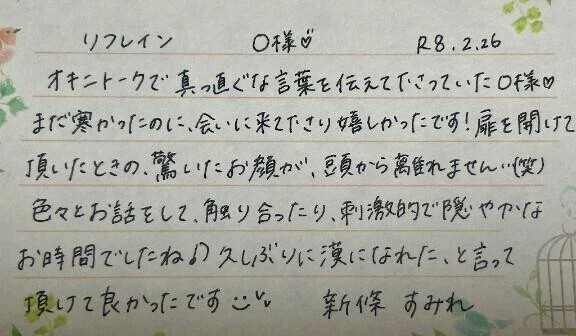 リフレイン　O様♡　R8.2.26
オキニトークで真っ直ぐな言葉を伝えて下さっていたO様♡
まだ寒かったのに、会いに来て下さり嬉しかったです！扉を開けて
頂いたときの、驚いたお顔が、頭から離れません…(笑)
色々とお話をして、触り合ったり、刺激的で穏やかな
お時間でしたね♪久しぶりに漢になれた、と言って
頂けて良かったです　新條　すみれ